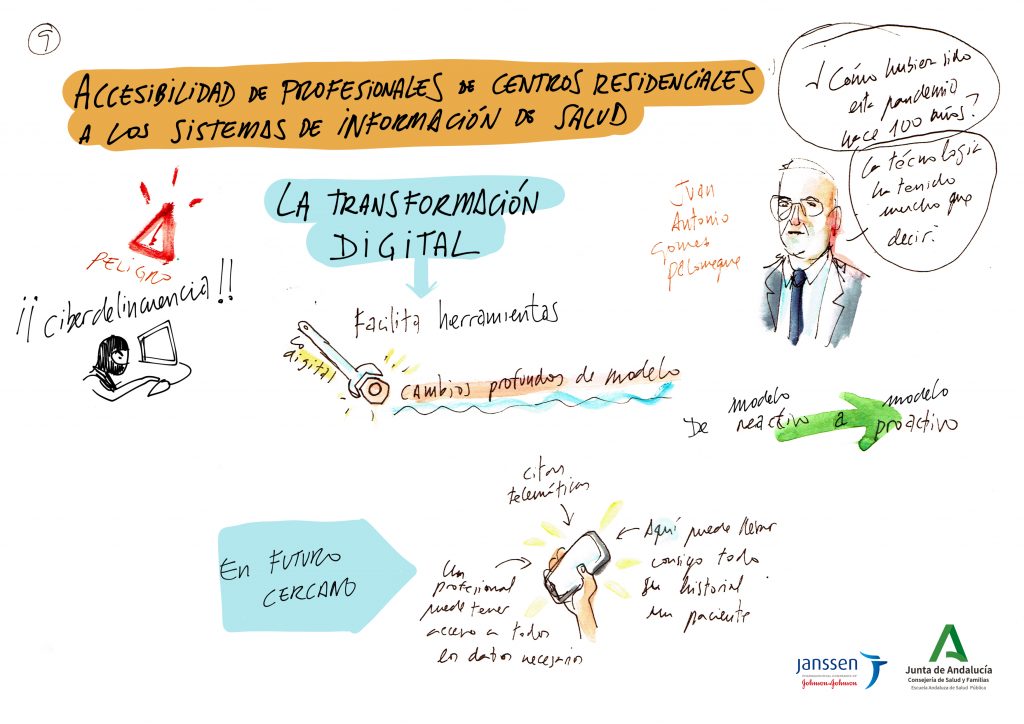 9
ACCESIBILIDAD DE PROFESIONALES DE CENTROS RESIDENCIALES
A LOS SISTEMAS DE INFORMACIÓN DE SALUD
¿Cómo hubiera sido
esta pandemia
hace 100 años?
La técnología
ha tenido
mucho que
decir.
Juan
Antonio
Gomes
Palomeque
LA TRANSFORMACIÓN
DIGITAL
PELIGRO
¡¡Ciberdelincuencia!!
Facilita herramientas
lo
digital
CAMBIOS profundos de modelo
De modelo reactivo a modelo proactivo
EN FUTURO
CERCANO
citas
telemáticas
Un
profesional
puede tener
acceso a todos
los datos necesarios
Aquí puede llevar
consigo todo
su historial
un paciente
janssen
PHARMACEUTICAL COMPANIES OF
Johnson & Johnson
Junta de Andalucía
Consejería de Salud y Familias
Escuela Andaluza de Salud Pública